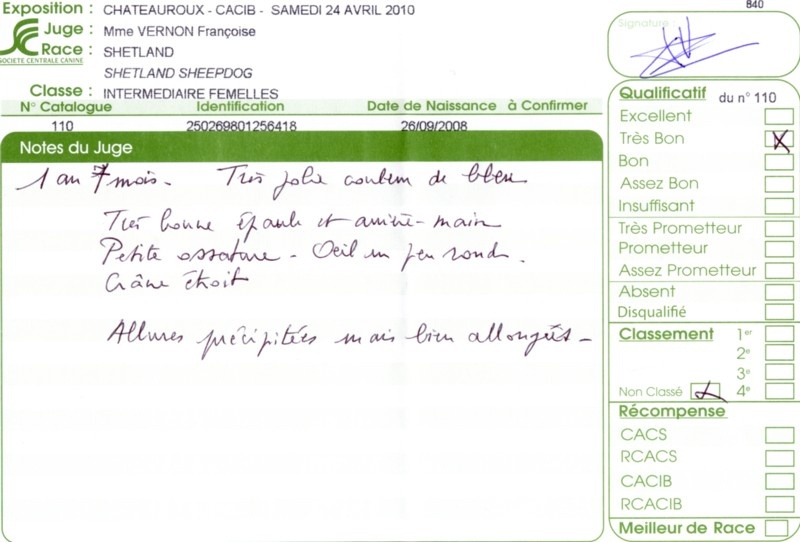 Exposition : CHATEAUROUX - CACIB - SAMEDI 24 AVRIL 2010
Juge : Mme VERNON Françoise
Race : SHETLAND
SOCIETE CENTRALE CANINE
SHETLAND SHEEPDOG
Classe : INTERMEDIAIRE FEMELLES
N° Catalogue Identification Date de Naissance à Confirmer
110 250269801256418 26/09/2008
Notes du Juge
1 an 7 mois - Très jolie couleur de bleu
Très bonne épaule et arrière-main
Petite ossature - Oeil un peu rond.
Crâne étroit
Allures précipitées mais bien allongées -
840
Signature :
Qualificatif du n° 110
Excellent
Très Bon X
Bon
Assez Bon
Insuffisant
Très Prometteur
Prometteur
Assez Prometteur
Absent
Disqualifié
Classement 1er
2e
3e
Non Classé X 4e
Récompense
CACS
RCACS
CACIB
RCACIB
Meilleur de Race